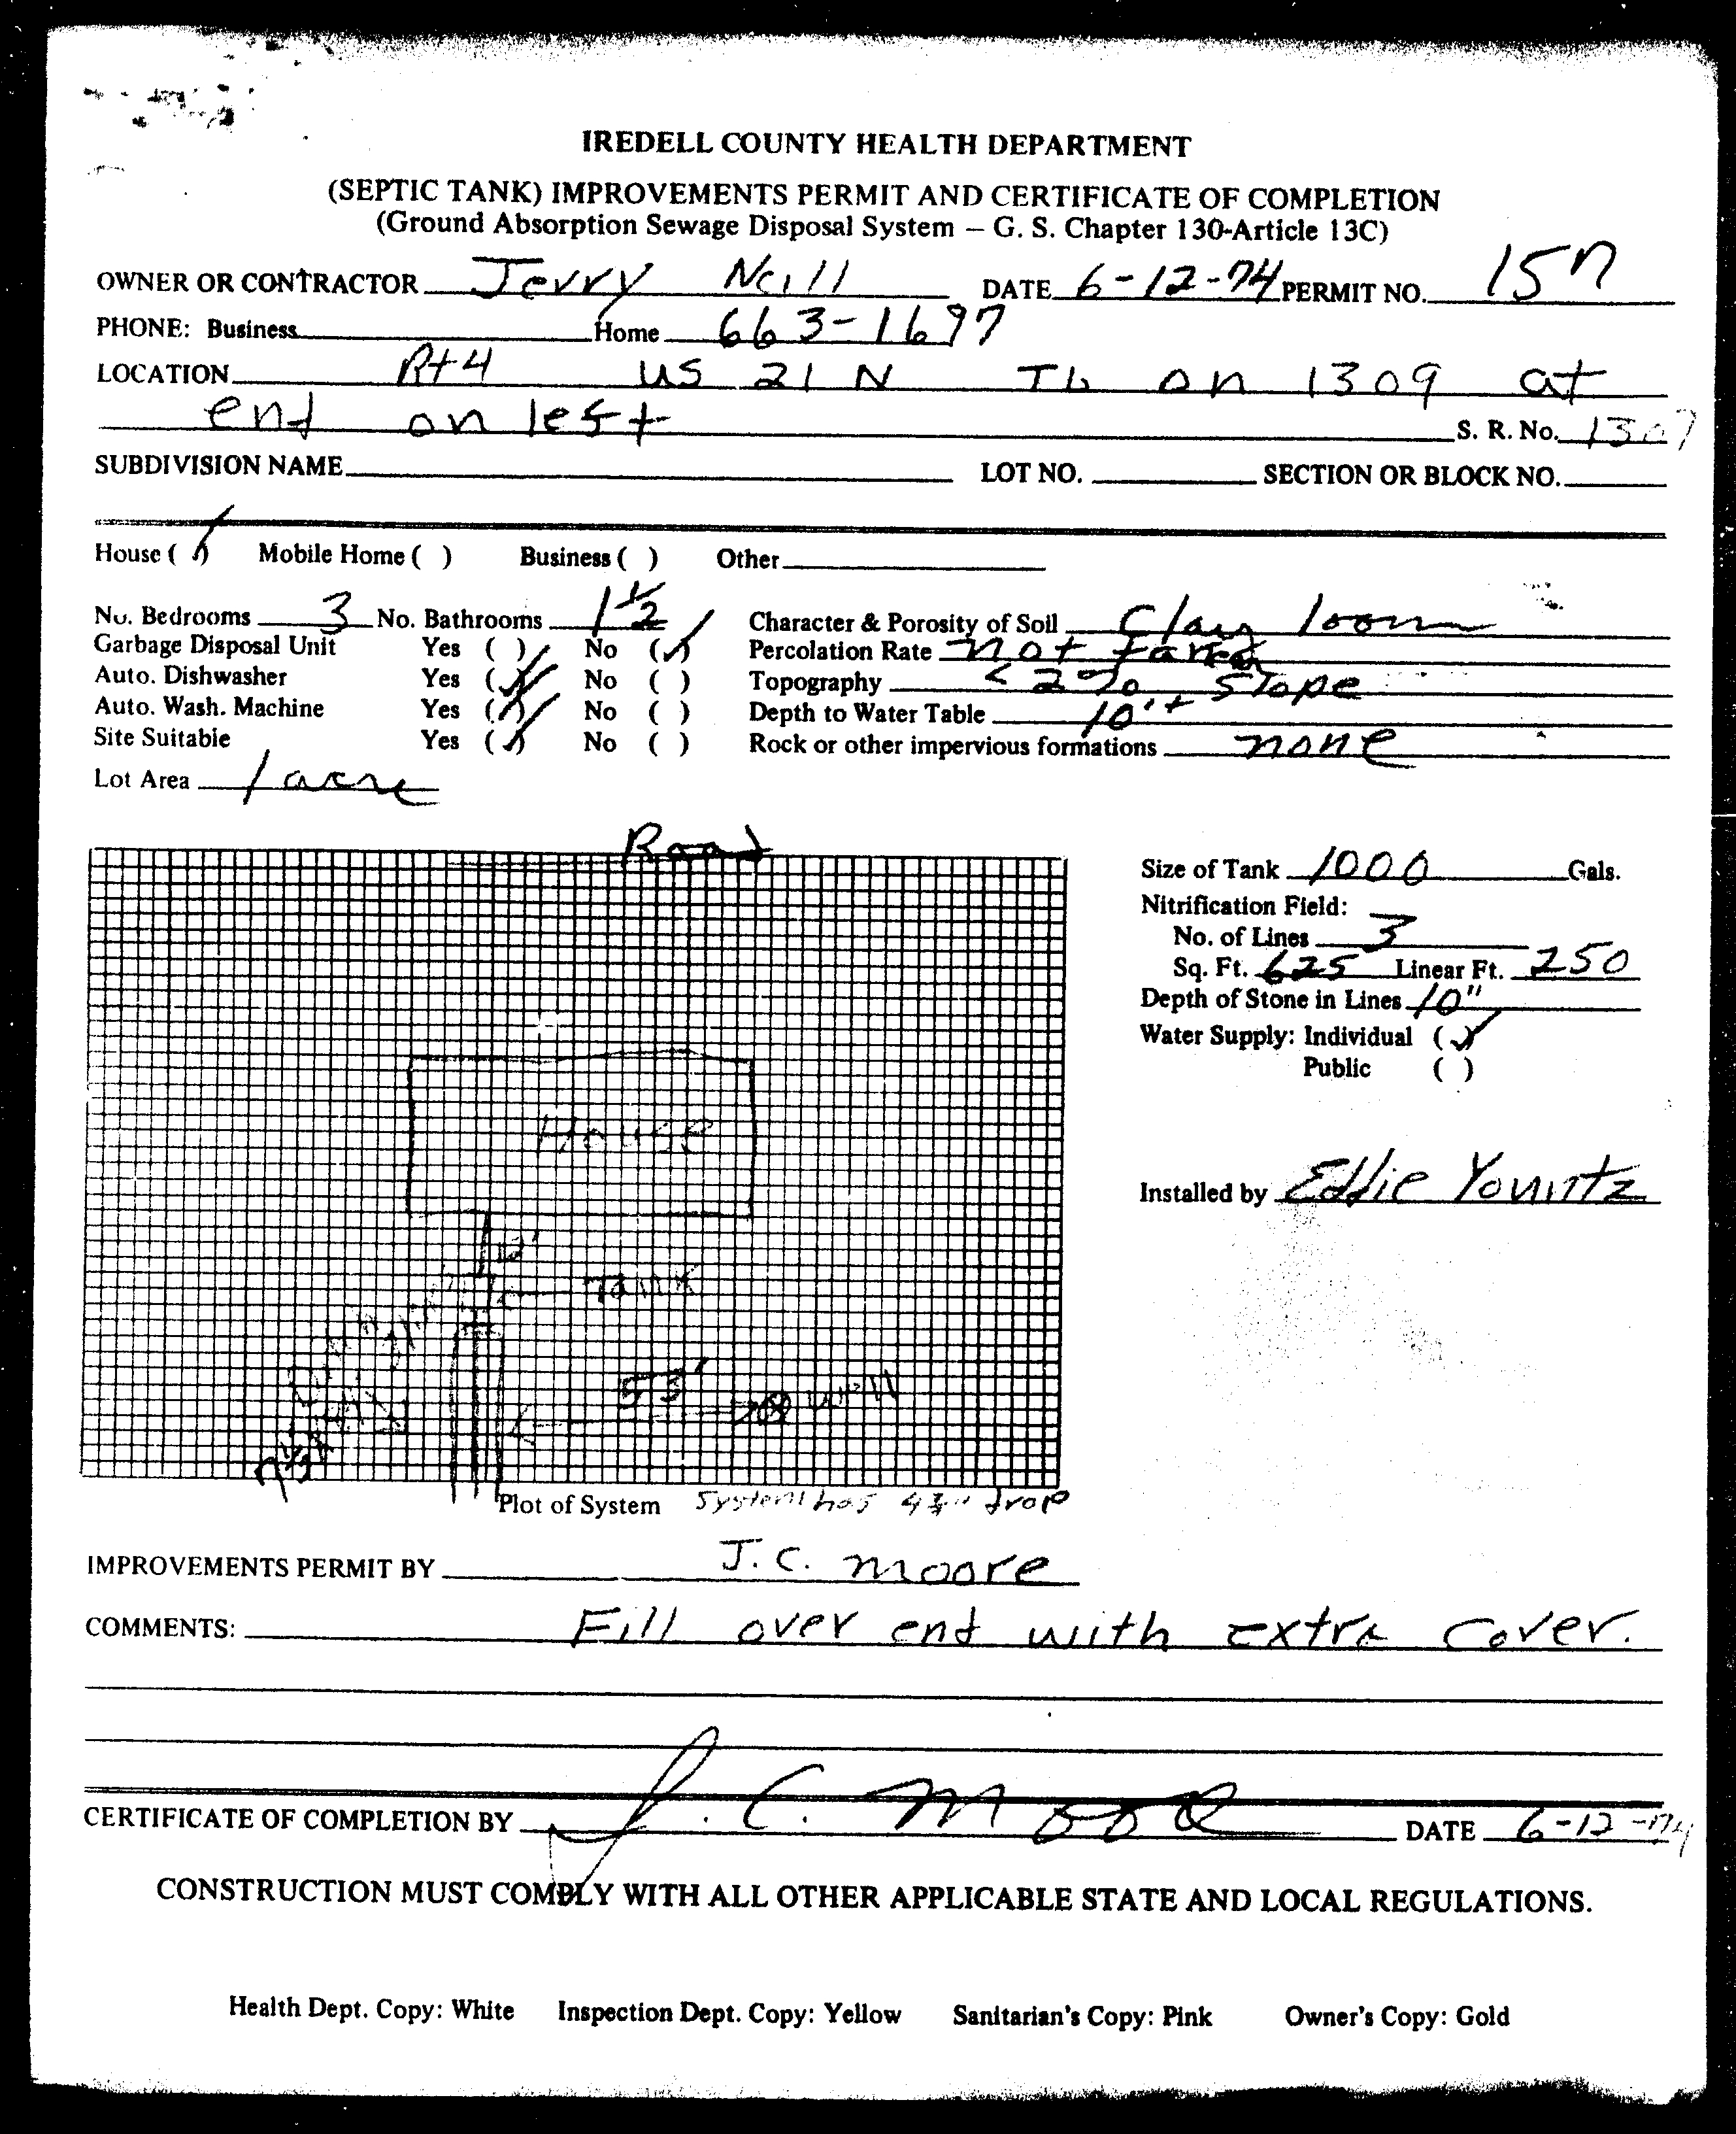 IREDELL COUNTY HEALTH DEPARTMENT
(SEPTIC TANK) IMPROVEMENTS PERMIT AND CERTIFICATE OF COMPLETION
(Ground Absorption Sewage Disposal System – G. S. Chapter 130-Article 13C)
OWNER OR CONTRACTOR Jerry Neill DATE 6-12-74 PERMIT NO. 157
PHONE: Business Home 663-1697
LOCATION Rt 4 US 21 N TL on 1309 at
end on left S. R. No. 1309
SUBDIVISION NAME LOT NO. SECTION OR BLOCK NO.
House (✓) Mobile Home ( ) Business ( ) Other
No. Bedrooms 3 No. Bathrooms 1 1/2 Character & Porosity of Soil Clay loom
Garbage Disposal Unit Yes ( ) No (✓) Percolation Rate not taken
Auto. Dishwasher Yes (✓) No ( ) Topography < 2% slope
Auto. Wash. Machine Yes (✓) No ( ) Depth to Water Table 10'+
Site Suitable Yes (✓) No ( ) Rock or other impervious formations none
Lot Area 1 acre
Road
Size of Tank 1000 Gals.
Nitrification Field:
No. of Lines 3
Sq. Ft. 625 Linear Ft. 250
Depth of Stone in Lines 10"
Water Supply: Individual (✓)
Public ( )
House
Installed by Eddie Yountz
12'
Tank
53' well
Plot of System System has 4 3/4" drop
IMPROVEMENTS PERMIT BY J. C. Moore
COMMENTS: Fill over end with extra cover.
CERTIFICATE OF COMPLETION BY J. C. Moore DATE 6-12-74
CONSTRUCTION MUST COMPLY WITH ALL OTHER APPLICABLE STATE AND LOCAL REGULATIONS.
Health Dept. Copy: White Inspection Dept. Copy: Yellow Sanitarian's Copy: Pink Owner's Copy: Gold